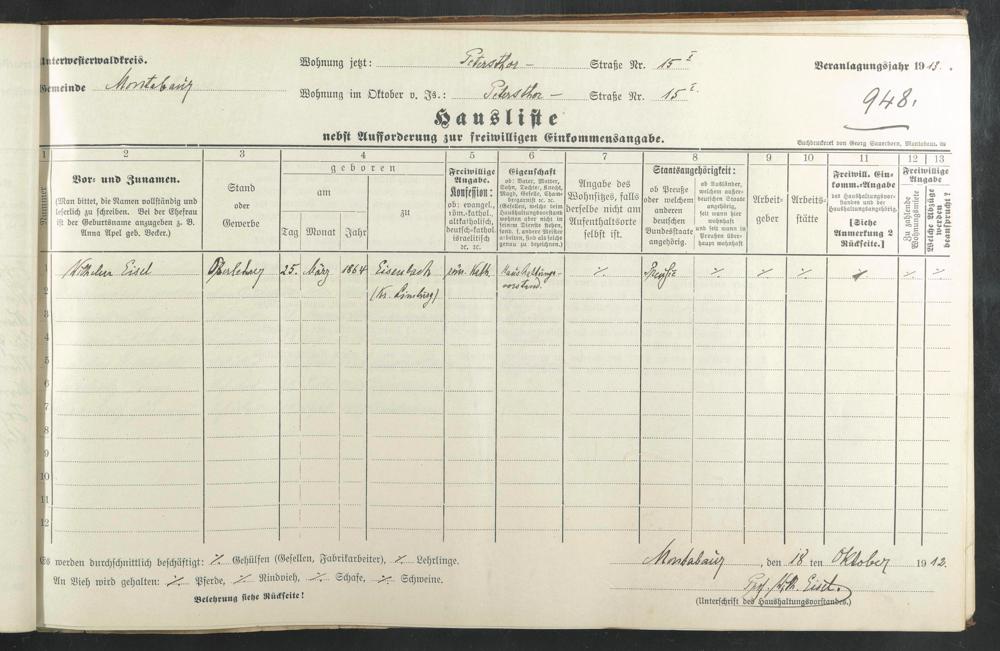 Unterwesterwaldkreis.
Wohnung jetzt: Petersthor - Straße Nr. 15 I
Veranlagungsjahr 1913.
Gemeinde Montabaur
Wohnung im Oktober v. Js.: Petersthor - Straße Nr. 15 I.
948.
Hausliste
nebst Aufforderung zur freiwilligen Einkommensangabe.
Buchdruckerei von Georg Sauerborn, Montabaur.
1 2 3 4 5 6 7 8 9 10 11 12 13
Nummer
Vor= und Zunamen.
(Man bittet, die Namen vollständig und
leserlich zu schreiben. Bei der Ehefrau
ist der Geburtsname anzugeben z. B.
Anna Apel geb. Becker.)
Stand
oder
Gewerbe
geboren
am
zu
Tag Monat Jahr
Freiwillige
Angabe.
Konfession:
ob: evangel.,
röm.=kathol.,
altkatholisch,
deutsch=kathol.
israelitisch
ec. ec.
Eigenschaft
ob: Vater, Mutter,
Sohn, Tochter, Knecht,
Magd, Geselle, Cham=
bregarnist ec. ec.
(Gesellen, welche beim
Haushaltungsvorstand
wohnen aber nicht in
seinem Dienste stehen,
sond. f. e. andere Meister
arbeiten, sind als solche
genau zu bezeichnen.)
Angabe des
Wohnsitzes, falls
derselbe nicht am
Aufenthaltsorte
selbst ist.
Staatsangehörigkeit:
ob Preuße
oder welchem
anderen
deutschen
Bundesstaate
angehörig.
ob Ausländer,
welchem außer=
deutschen Staate
angehörig,
seit wann hier
wohnhaft
und seit wann in
Preußen über=
haupt wohnhaft
Arbeit=
geber
Arbeits=
stätte
Freiwill. Ein=
komm.=Angabe
des Haushaltungsvor=
standes und der
Haushaltungsangehörig.
[Siehe
Anmerkung 2
Rückseite.]
Freiwillige
Angabe
Zu zahlende
Wohnungsmiete
Welche Abzüge
werden
beansprucht?
1 Wilhelm Eisel Oberlehrer 25. März 1864 Eisenbach röm. kath. Haushaltungs- ⁒ Preuße ⁒ ⁒ ⁒ ⁒ ⁒ ⁒
2 (Kr. Limburg) vorstand.
3
4
5
6
7
8
9
10
11
12
Es werden durchschnittlich beschäftigt: ⁒ Gehülfen (Gesellen, Fabrikarbeiter), ⁒ Lehrlinge.
An Vieh wird gehalten: ⁒ Pferde, ⁒ Rindvieh, ⁒ Schafe, ⁒ Schweine.
Belehrung siehe Rückseite!
Montabaur, den 18 ten Oktober 1912.
Prof. Wilh. Eisel.
(Unterschrift des Haushaltungsvorstandes.)